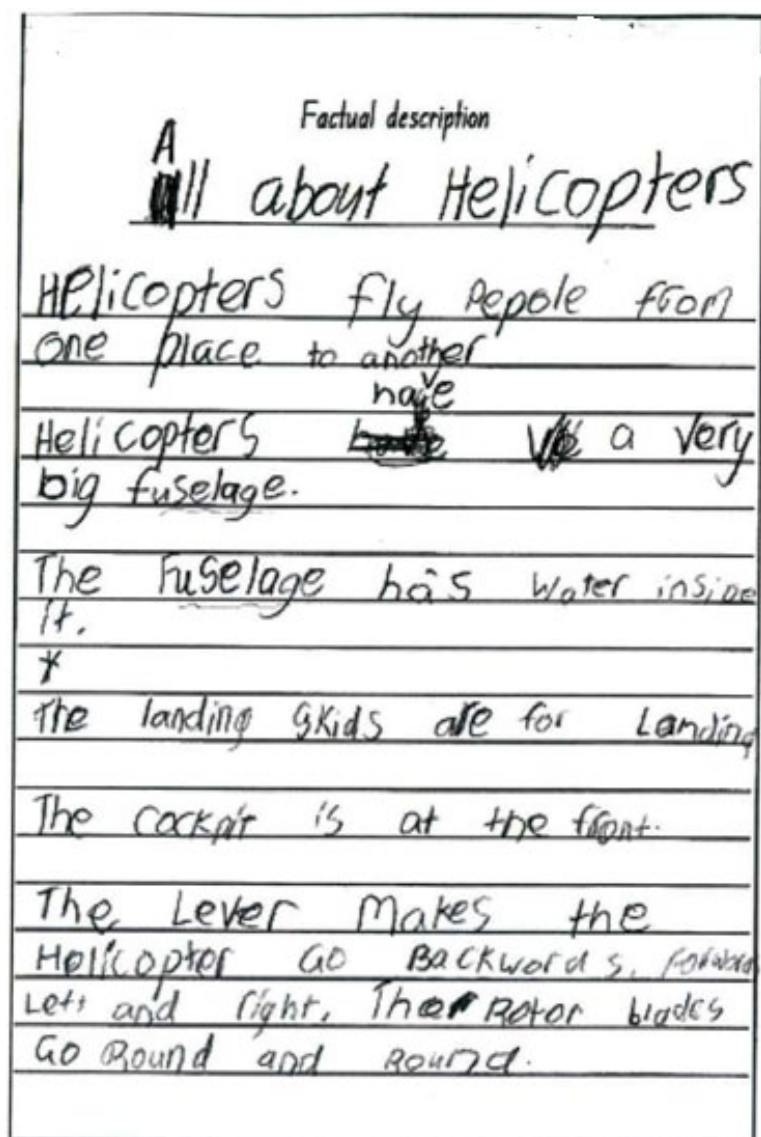 Factual description
All about Helicopters
Helicopters fly Pepole from
one place to another
have
Helicopters a very
big fuselage.
The Fuselage has Water inside
it.
*
The landing skids are for Landing
The cockpit is at the front.
The Lever Makes the
Helicopter Go Backwords, Forwards
Left and right. The Rotor blades
Go Round and Round.